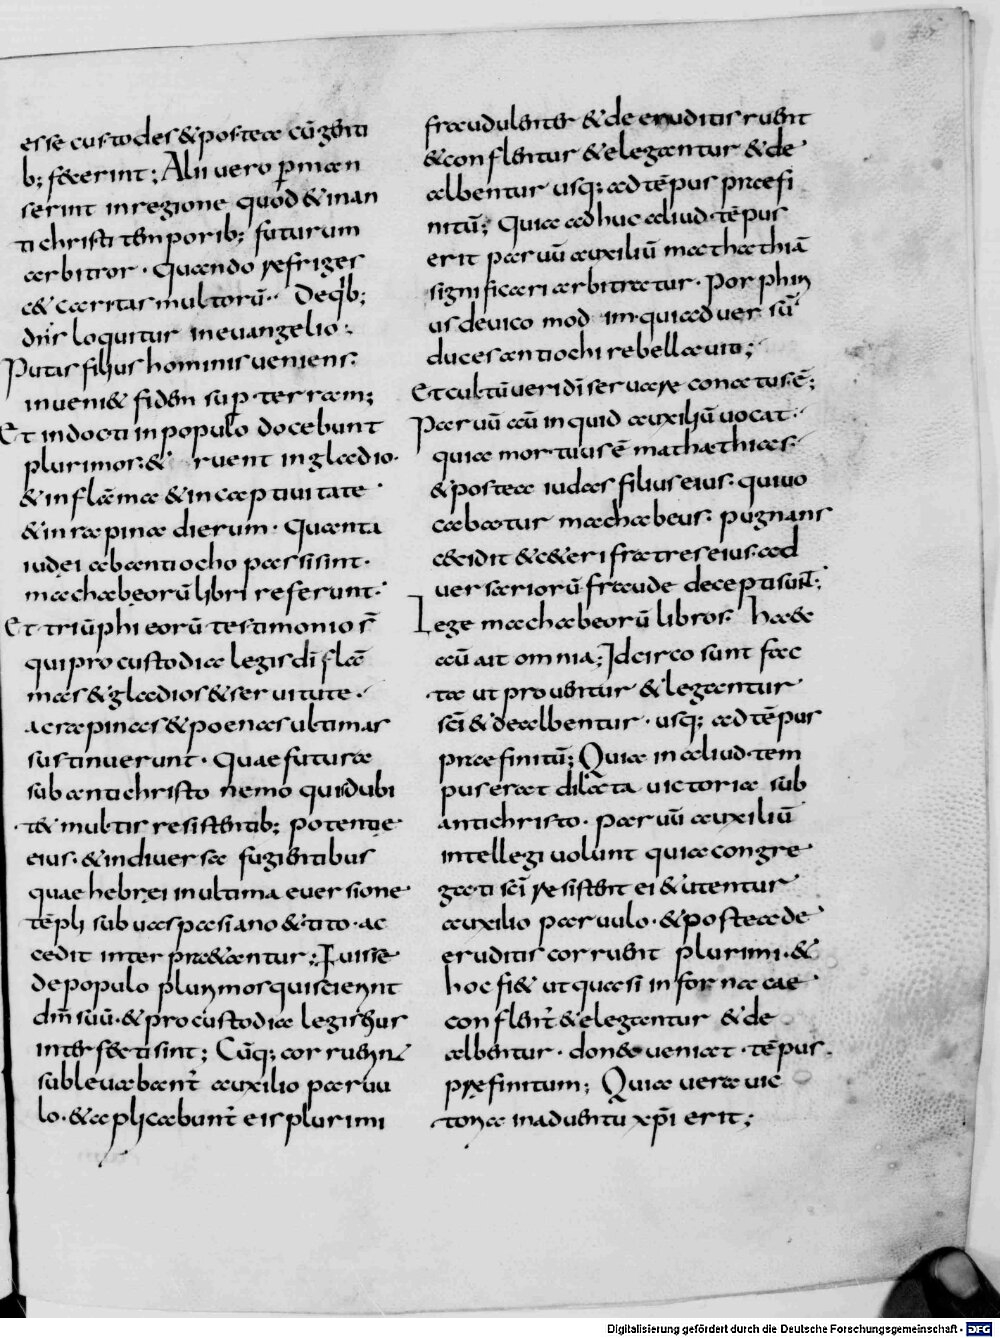 esse custodes & postea cū genti
b; fecerint; Alii vero p man
serint in regione quod & in an
ti christi temporib; futurum
arbitror · Quando refriges
c& caritas multorū · De qb;
dn̄s loquitur in evangelio ·
Putas filius hominis veniens ·
inveni& fidem sup terram;
Et indocti in populo docebunt
plurimos · & ruent in gladio ·
& in flāma & in captivitate ·
& in rapina dierum · Quanta
iudei ab antiocho passi sint ·
machabeorū libri referunt ·
Et triūphi eorū testimonio s̄
qui pro custodia legis dī flā
mas & gladios & servitute ·
ac rapinas & poenas ultimas
sustinuerunt · Quae futura
sub antichristo nemo quis dubi
t& multis resistentib; potentie
eius · & in diversa fugientibus
quae hebrei in ultima eversione
tēpli sub vaspasiano & tito · ac
cedit interpr&antur; Fuisse
de populo plurimos qui scierint
dm̄ suū · & pro custodia legis eius
interfecti sint; Cūq; corruerint
sublevabant̄ auxilio parvu
lo · & aplicabunt̄ eis plurimi
fraudulenter & de eruditis ruent
& conflentur & elegantur & de
albentur usq; ad tēpus praefi
nitū; Quia ad huc aliud tēpus
erit parvū auxiliū mathathiā
significari arbitratur · Porphiri
us de vico modim · qui adversū
duces antiochi rebellavit;
Et cultū veri dī servare conatus ē;
Parvū aū inquid auxiliū vocat ·
quia mortuus ē mathathias ·
& postea iudas filius eius · qui vo
cabatur machabeus · pugnans
cecidit & c&eri fratres eius · ad
versariorū fraude decepti sunt;
Lege machabeorū libros · haec
aū ait omnia; Idcirco sunt fac
ta ut proventur & legantur
sc̄i & dealbentur · usq; ad tēpus
praefinitū; Quia in aliud tem
pus erat dilata victoria sub
antichristo · parvū auxiliū
intellegi volunt quia congre
gati sc̄i resistent ei & utentur
auxilio parvulo · & postea de
eruditis corruent plurimi · &
hoc fi& ut quasi in fornacae
conflent̄ & elegantur & de
albentur · donec veniat · tēpus
prefinitum; Quia vera vic
toria in adventu xp̄i erit;
Digitalisierung gefördert durch die Deutsche Forschungsgemeinschaft - DFG